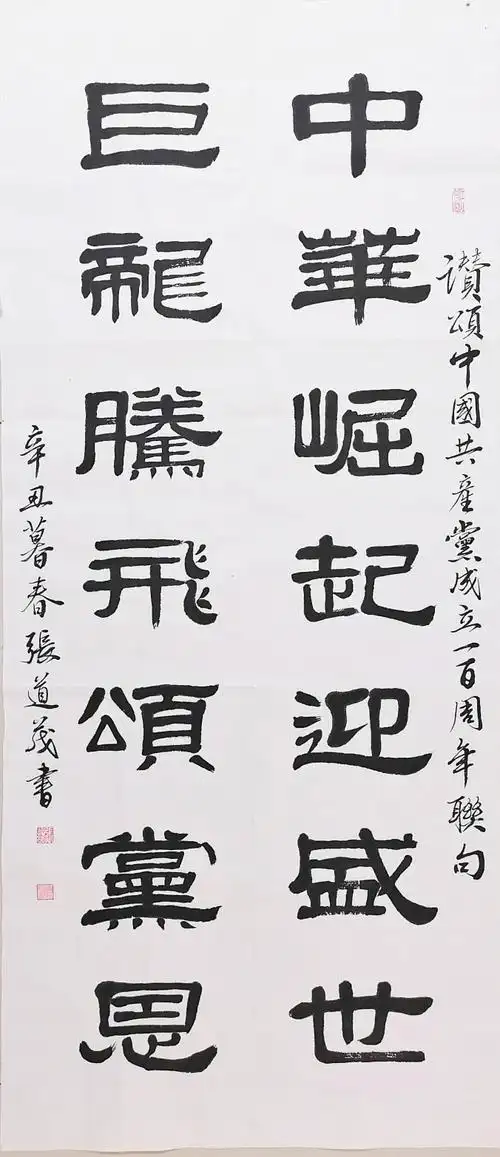 讚頌中國共產黨成立一百周年聯句
中華崛起迎盛世
巨龍騰飛頌黨恩
辛丑暮春張道茂書